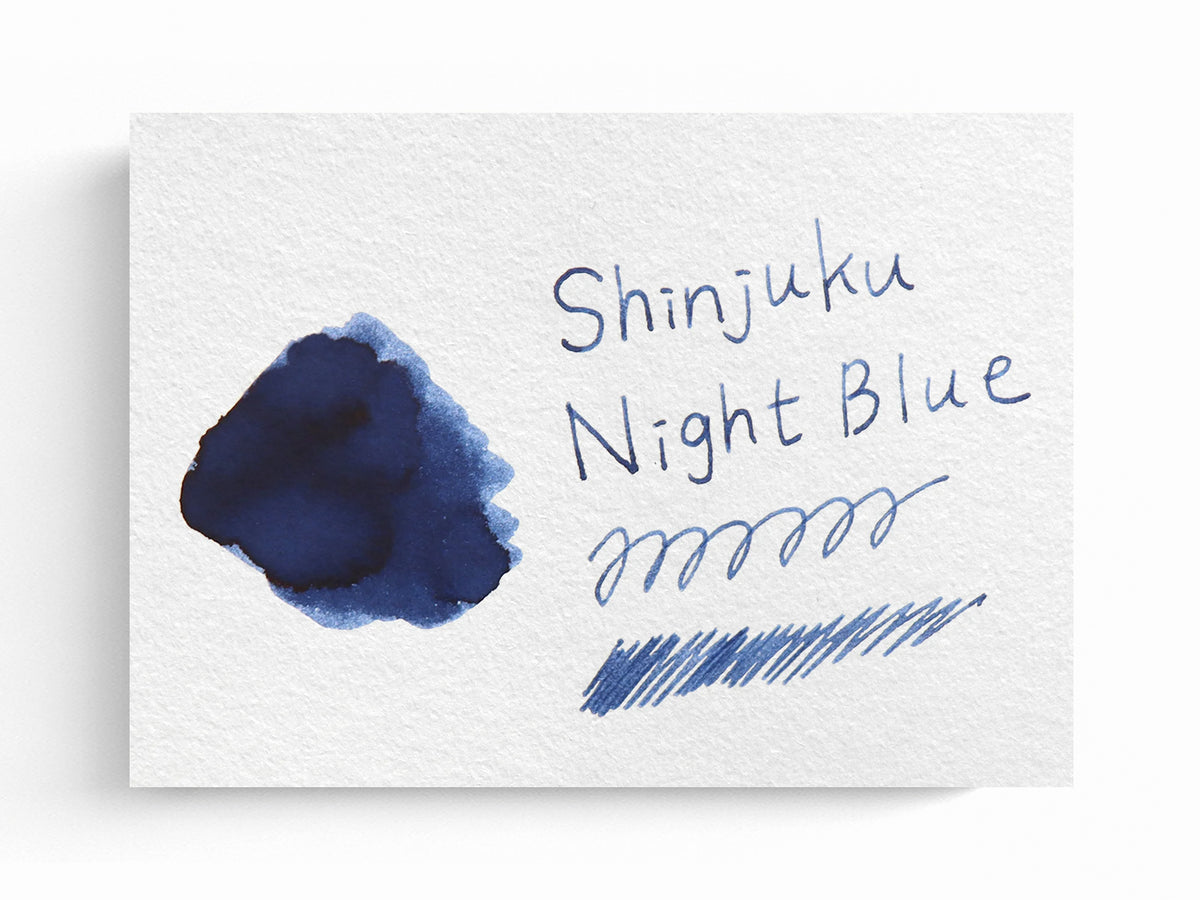 Shinjuku
Night Blue